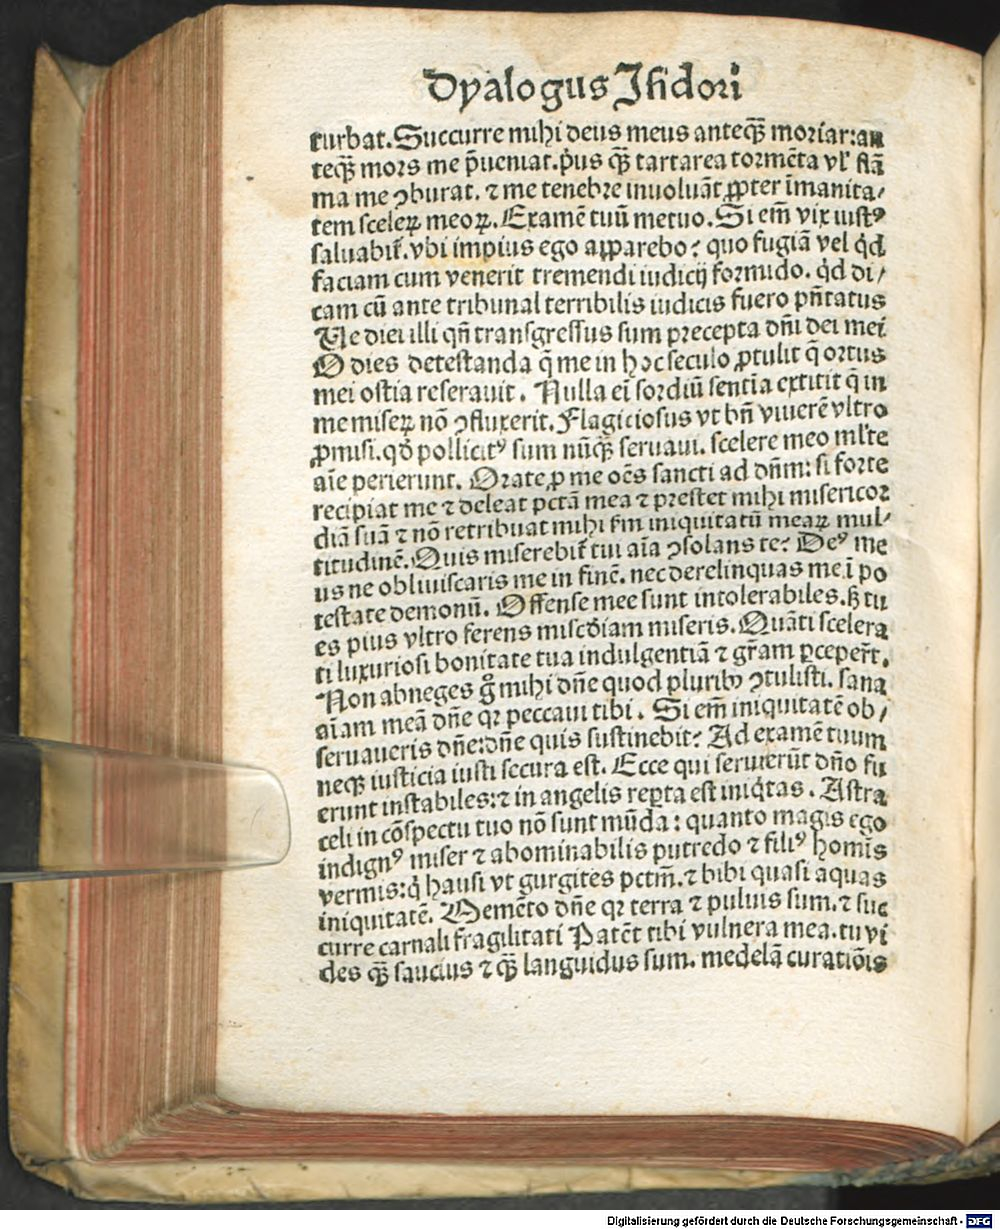 Dyalogus Isidori
turbat. Succurre mihi deus meus anteqꝫ moriar: an
teqꝫ mors me p̄ueniat. p̓us qꝫ tartarea tormēta vl̓ flā
ma me ꝯburat. ⁊ me tenebre inuoluāt ꝓpter īmanita⸗
tem sceleꝝ meoꝝ. Examē tuū metuo. Si em̄ vix iustꝰ
saluabit̓. vbi impius ego apparebo? quo fugiā vel qd̓
faciam cum venerit tremendi iudicij formido. qd̓ di⸗
cam cū ante tribunal terribilis iudicis fuero pn̄tatus
Ue diei illi qn̄ transgressus sum precepta dn̄i dei mei
O dies detestanda q̄ me in hoc seculo ꝓtulit q̄ ortus
mei ostia reserauit. Nulla ei̓ sordiū sentīa extitit q̄ in
me miseꝝ nō ꝯfluxerit. Flagiciosus vt bn̄ viuerē vltro
ꝓmisi. qd̓ pollicitꝰ sum nūqꝫ seruaui. scelere meo ml̓te
aīe perierunt. Orate ꝓ me oēs sancti ad dn̄m: si forte
recipiat me ⁊ deleat pctā mea ⁊ prestet mihi misericor
diā suā ⁊ nō retribuat mihi s̓m iniquitatū meaꝝ mul⸗
titudinē. Quis miserebit̓ tui aīa ꝯsolans te? Deꝰ me
us ne obliuiscaris me in finē. nec derelinquas me ī po
testate demonū. Offense mee sunt intolerabiles. sꝫ tu
es pius vltro ferens misc̓diam miseris. Quāti scelera
ti luxuriosi bonitate tua indulgentiā ⁊ gr̄am ꝑceper̄t.
Non abneges g̊ mihi dn̄e quod pluribꝰ ꝯtulisti. sana
aīam meā dn̄e qꝛ peccaui tibi. Si em̄ iniquitatē ob⸗
seruaueris dn̄e: dn̄e quis sustinebit? Ad examē tuum
neqꝫ iusticia iusti secura est. Ecce qui seruierūt dn̄o fu
erunt instabiles: ⁊ in angelis reꝑta est iniq̓tas. Astra
celi in cōspectu tuo nō sunt mūda: quanto magis ego
indignꝰ miser ⁊ abominabilis putredo ⁊ filiꝰ homīs
vermis: q̓ hausi vt gurgites pctm̄. ⁊ bibi quasi aquas
iniquitatē. Memēto dn̄e qꝛ terra ⁊ puluis sum. ⁊ suc
curre carnali fragilitati Patēt tibi vulnera mea. tu vi
des qꝫ saucius ⁊ qꝫ languidus sum. medelā curatiōis
Digitalisierung gefördert durch die Deutsche Forschungsgemeinschaft - DFG